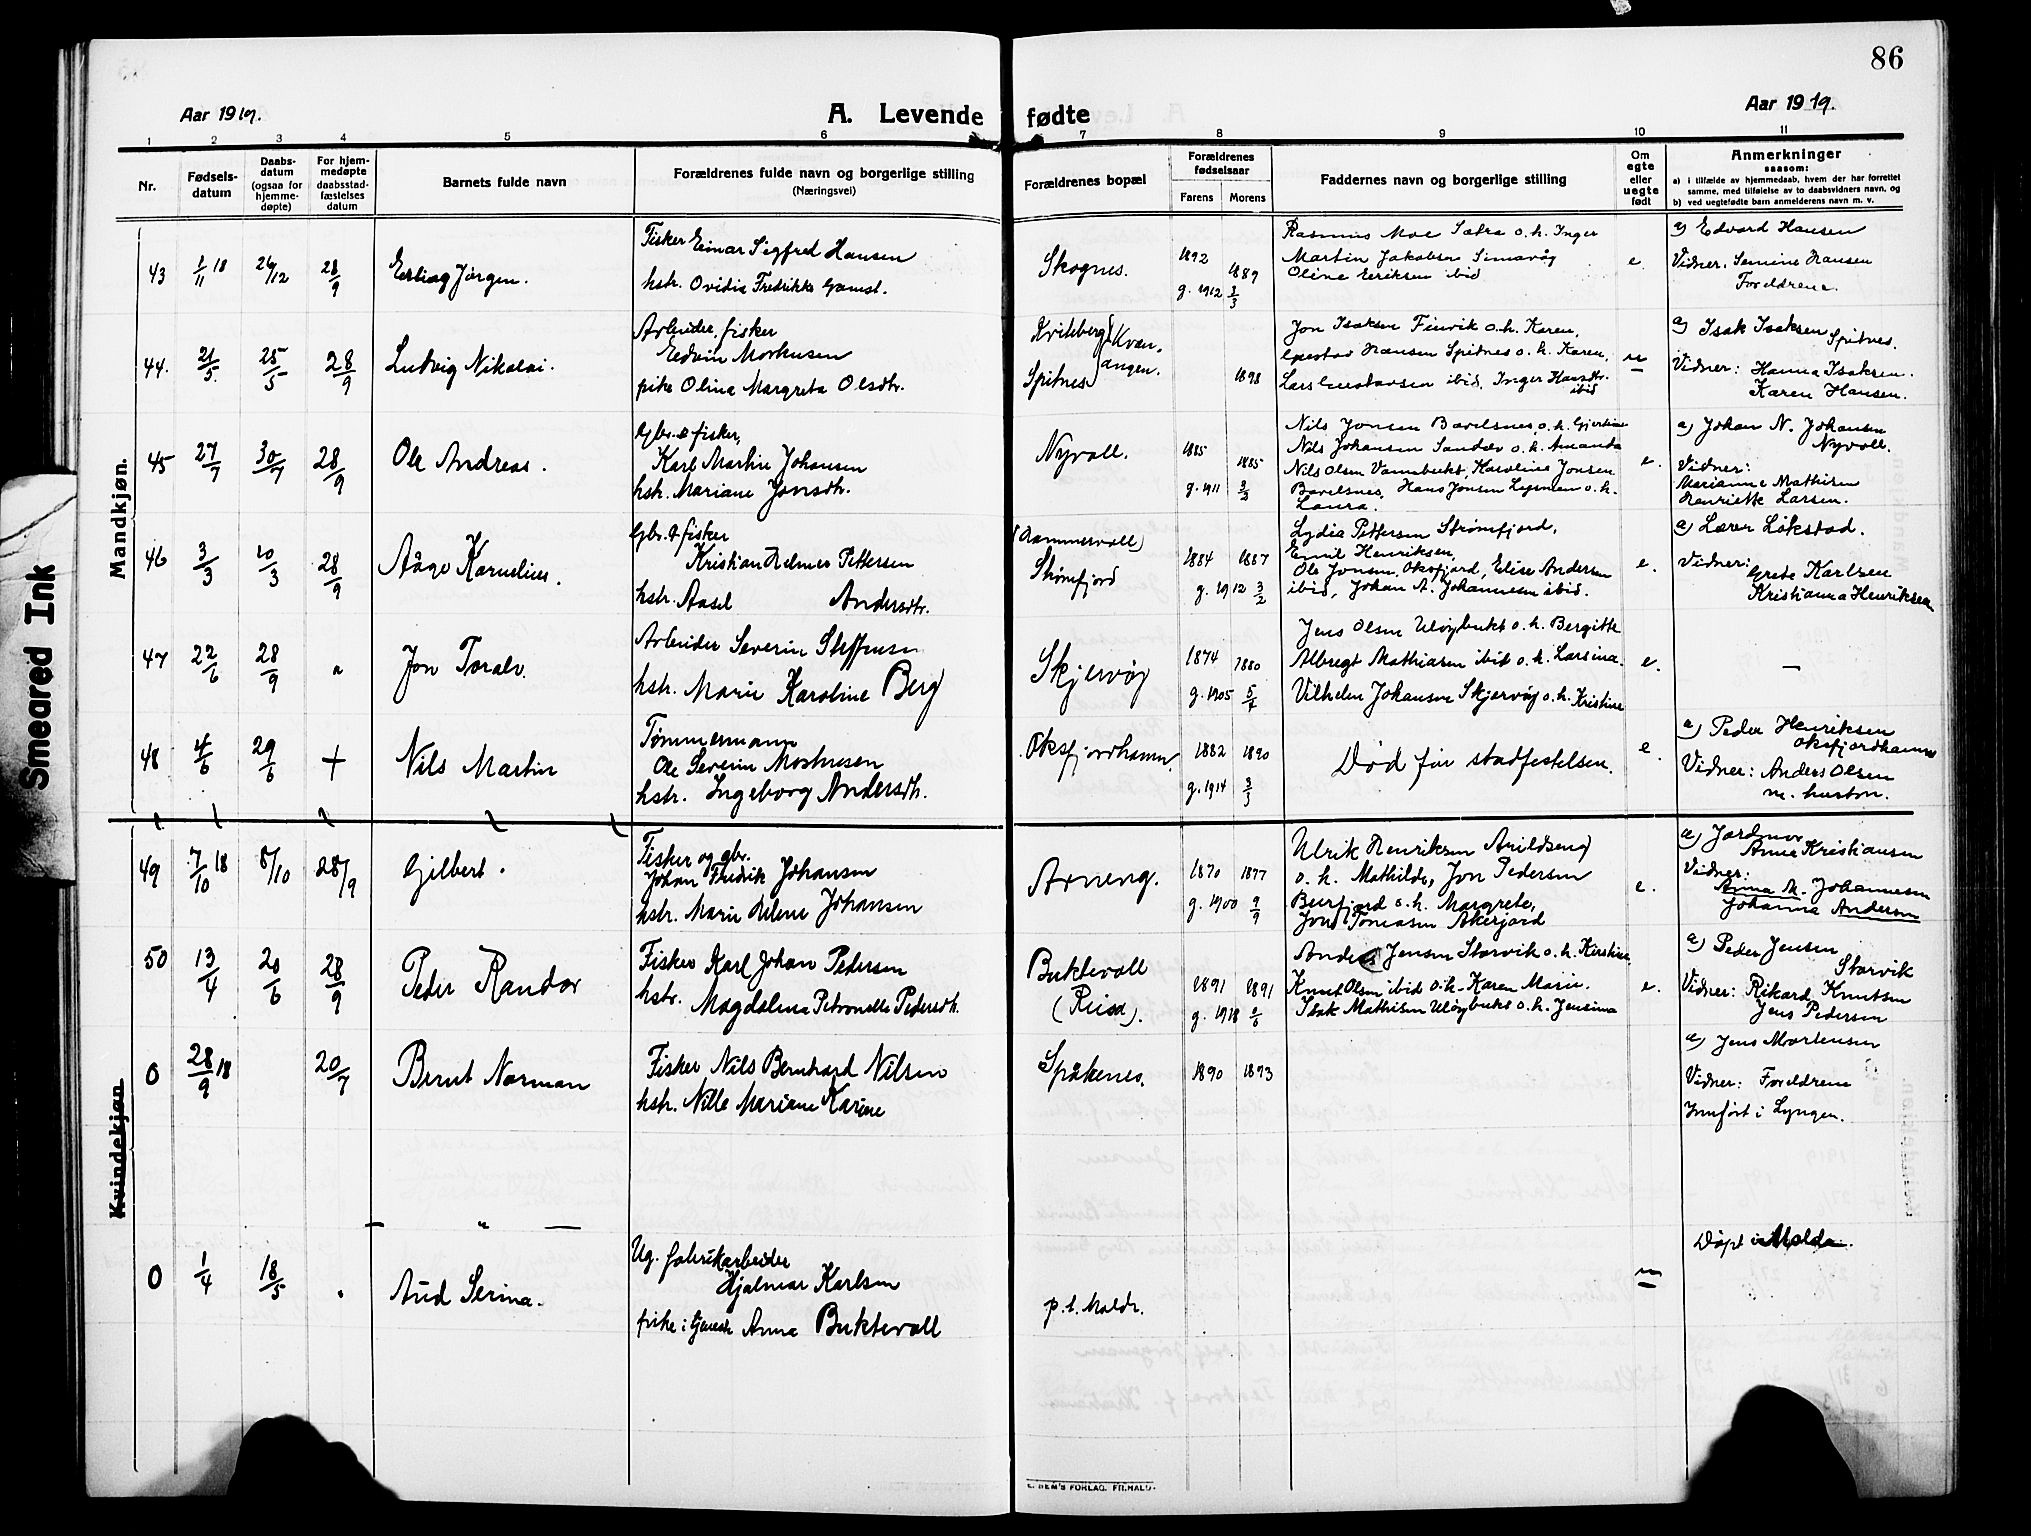 86
Aar 1919.
A. Levende fødte
Aar 1919.
1 2 3 4 5 6 7 8 9 10 11
Nr.
Fødsels-
datum
Daabs-
datum
(ogsaa for
hjemme-
døpte)
For hjem-
medøpte
daabsstad-
fæstelses
datum
Barnets fulde navn
Forældrenes fulde navn og borgerlige stilling
(Næringsvei)
Forældrenes bopæl
Forældrenes
fødselsaar
Farens Morens
Faddernes navn og borgerlige stilling
Om
egte
eller
uegte
født
Anmerkninger
saasom:
a) i tilfælde av hjemmedaab, hvem der har forrettet
samme, med tilføielse av to daabsvidners navn, og
b) ved uegtefødte barn anmelderens navn m. v.
Mandkjøn.
Smeared Ink
43 1/11 18 26/12 28/9 Erling Jørgen.
Fisker Einar Sigfred Hansen
hstr. Ovidia Fredrikke Gamst.
Skognes.
1892 1889
g. 1912 3/3
Rasmus Moe Sætra o.h. Inger
Martin Jakobsen Simavåg
Oline Eriksen ibid
e.
a) Edvard Hansen
Vidner. Semine Hansen
Foreldrene.
44. 21/5. 25/5 28/9 Ludvig Nikolai.
Arbeider, fisker
Edvin Morkusen
pike Olina Margreta Olsdtr.
Kviteberg Kvæn-
angen.
Spitnes
1898
Jon Isaksen Finvik o.h. Karen,
Gustav Hansen Spitnes o.h. Karen,
Lars Gustavsen ibid, Inger Hansdtr.
ibid
u
a) Isak Isaksen
Spitnes.
Vidner: Hanna Isaksen.
Karen Hansen.
45 27/7 30/7 28/9 Ole Andreas.
Gbr. & fisker,
Karl Martin Johansen
hstr. Mariane Jonsdtr.
Nyvoll.
1885 1885
g. 1911 3/3
Nils Jonsen Bavelsnes, o.h. Gjertine
Nils Johansen Sandør o.h. Amanda
Nils Olsen Vannabukt, Karoline Jonsen
Bavelsnes, Hans Jonsen o.h.
Laura.
e.
a) Johan N. Johansen
Nyvoll.
Vidner:
Marianne Mathisen
Henriette Larsen.
46 3/3 10/3 28/9 Aage Kornelius.
Gbr. & fisker
Kristian Helmer Pettersen
hstr. Aasel Andersdtr.
(Hammervoll)
Strømfjord
1884 1887
g. 1912 3/2
Lydia Pettersen Strømfjord,
Emil Henriksen,
Ole Jonsen, Oksfjord, Elise Andersen
ibid, Johan A. Johannesen ibid.
e.
a) Lærer Løkstad.
Vidner:
Grete Karlsen
Kristianna Henriksen
47 22/6 28/9 " Jon Toralv.
Arbeider Severin Steffensen
hstr. Marie Karoline Berg
Skjervøy
1874 1880
g. 1905 5/4
Jens Olsen Uløybukt o.h. Bergitte
Albregt Mathiasen ibid o.h. Larsina.
Vilhelm Johansen Skjervøy o.h. Kristine
e.
—
48 4/6 29/6 + Nils Martin
Tømmermann
Ole Severin Mortensen
hstr. Ingeborg Andersdtr.
Oksfjordhamn.
1882 1890
g. 1914 3/3
Død før stadfestelsen.
e.
a) Peder Henriksen
Oksfjordhamn
Vidner: Anders Olsen
m. hustru.
49 7/10 18 8/10 28/9 Gilbert.
Fisker og gbr.
Johan Fredrik Johansen
hstr. Marie Helene Johansen
Arneng.
1870 1877
g. 1900 9/9
Ulrik Henriksen Arildseng
o.h. Mathilde, Jon Pedersen
Burfjord o.h. Margrete,
Jons Tomasen Akerjord
e.
a) Jordmor
Anne Kristiansen
Vidner:
Anna M. Johannesen
Johanna Andersen
50 13/4 20/6 28/9 Peder Randor
Fisker Karl Johan Pedersen
hstr. Magdalena Petronelle Pedersdtr.
Buktevoll
(Reisa).
1891 1891
g. 1918 9/6
Anders Jensen Storvik o.h. Kirstine.
Knut Olsen ibid o.h. Karen Marie.
Isak Mathisen Uløybukt o.h. Jensina
e.
a) Peder Jensen
Storvik
Vidner: Rikard Knutsen
Jens Pedersen
Kvindekjøn
0 28/9 18 20/7 Bernt Norman
Fisker Nils Bernhard Nilsen
hstr. Nille Mariane Karine
Spåkenes.
1890 1893
a) Jens Mortensen
Vidner: Foreldrene
Innført i Lyngen.
— " —
0 1/4 18/5 " Aud Serina.
Ug. fabrikarbeider
Hjalmar Karlsen
pike i tjeneste Anna Buktevoll
p.t. Molde.
u
Døpt i Molde.
E. SEM'S FORLAG. FR.HALD.